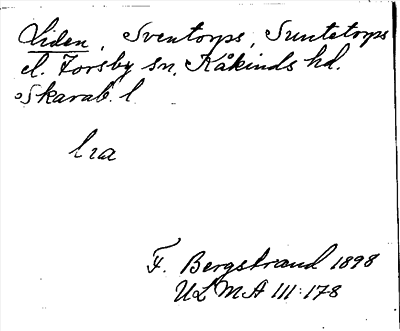 Liden, Sventorps, Suntetorps
el. Forsby sn, Kåkinds hd.
Skarab. l.
lra
F. Bergstrand 1898
ULMA III:178